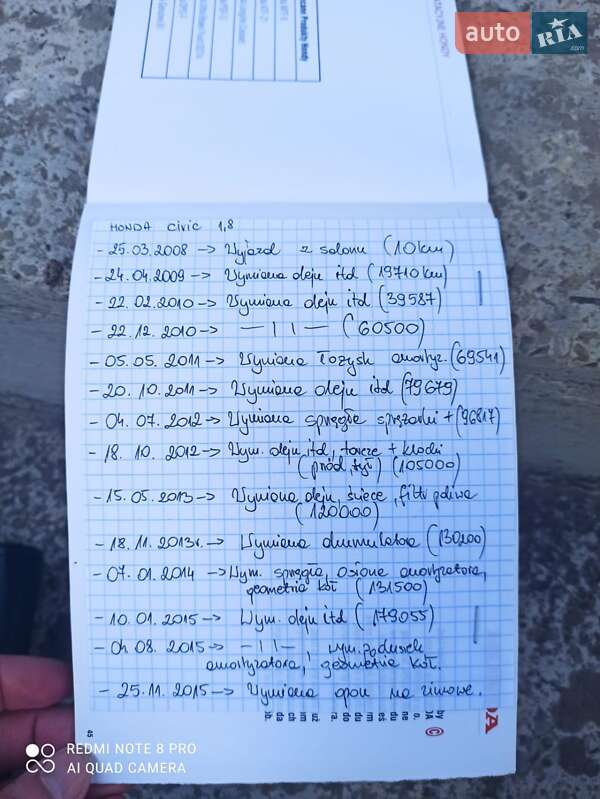 auto RIA .com
HONDA civic 1,8
- 25.03.2008 -> Wyjazd z salonu (10km)
- 24.04.2009 -> Wymiana oleju itd (19710 km)
- 22.02.2010 -> Wymiana oleju itd (39587)
- 22.12.2010 -> — I I — (60500)
- 05.05.2011 -> Wymiana łożysk amortyz. (69541)
- 20.10.2011 -> Wymiana oleju itd (79679)
- 04.07.2012 -> Wymiana sprzęgła + (96817)
- 18.10.2012 -> Wym. oleju itd, tarcze + klocki
(przód, tył) (105000)
- 15.05.2013 -> Wymiana oleju, świece, filtr paliwa
(120000)
- 18.11.2013r. -> Wymiana akumulatora (130200)
- 07.01.2014 -> Wym. sprzęgła, osłona amortyzatora,
geometria kół (131500)
- 10.01.2015 -> Wym. oleju itd (179055)
- 04.08.2015 -> — I I —, wym. poduszek
amortyzatora, geometria kół.
- 25.11.2015 -> Wymiana opon na zimowe.
45
REDMI NOTE 8 PRO
AI QUAD CAMERA